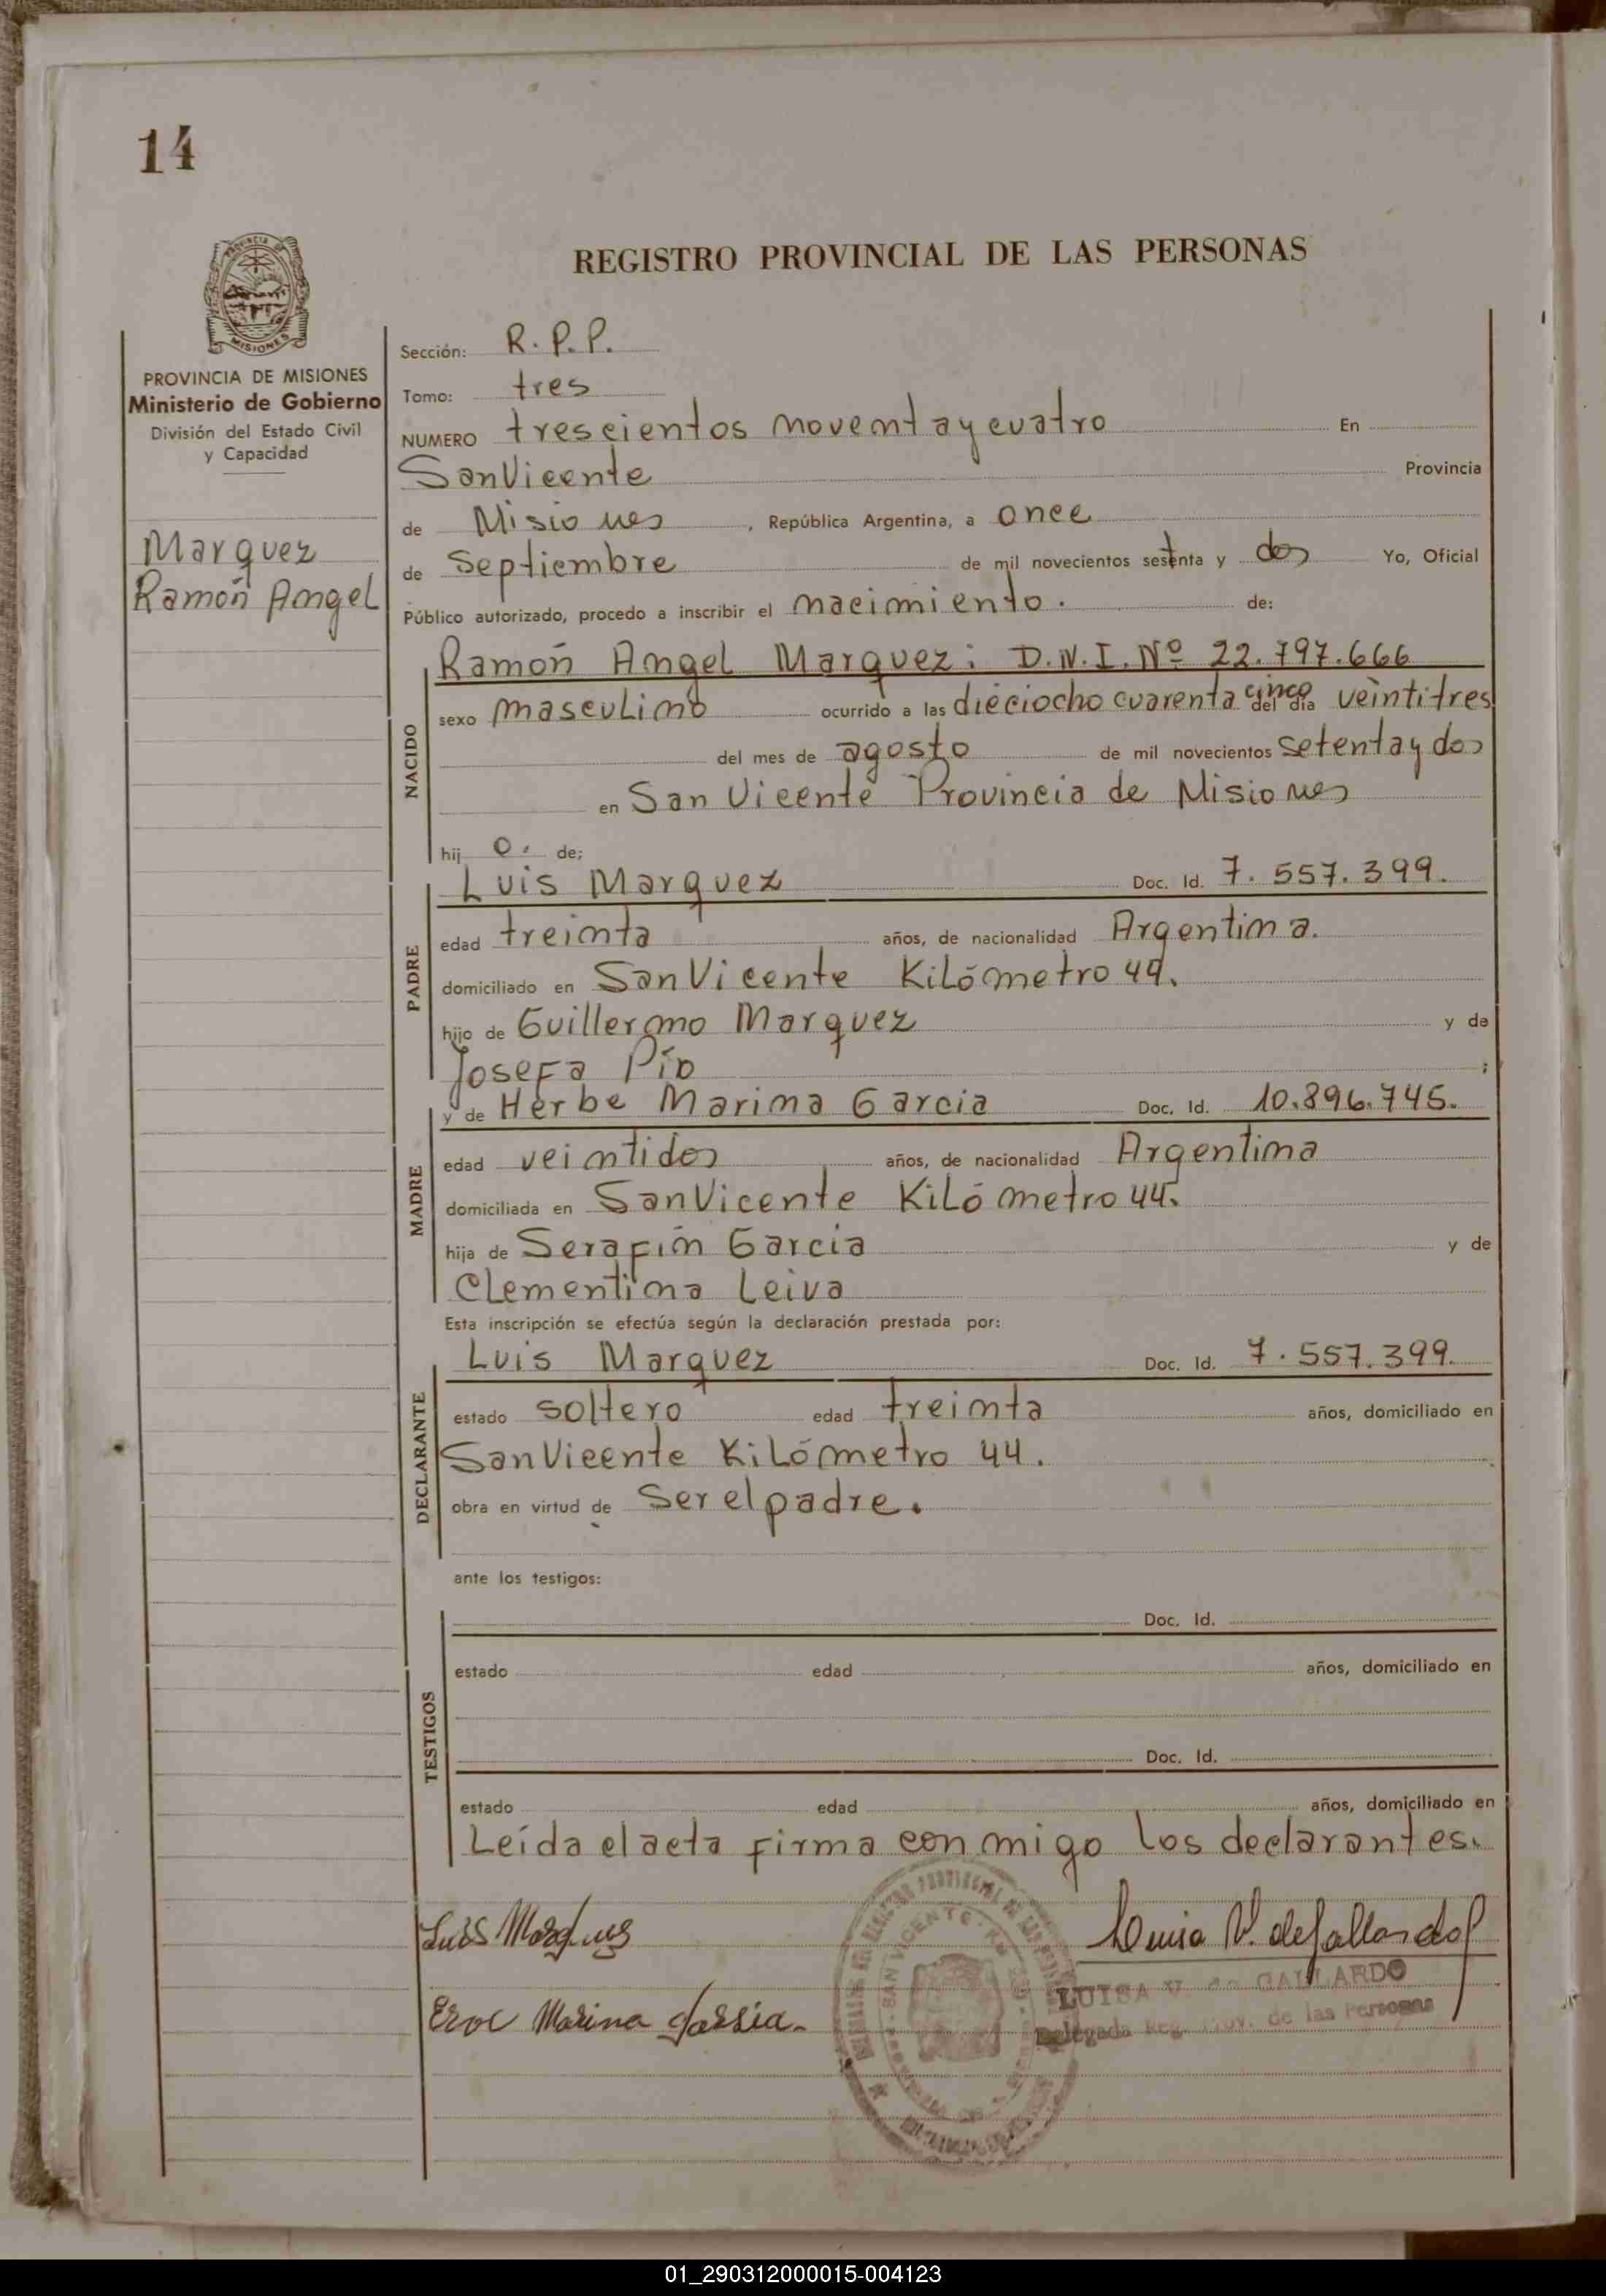 14
REGISTRO PROVINCIAL DE LAS PERSONAS
MISIONES
PROVINCIA DE MISIONES
Ministerio de Gobierno
División del Estado Civil
y Capacidad
Marquez
Ramón Angel
Sección: R. P. P.
Tomo: tres
NUMERO trescientos noventa y cuatro En
San Vicente Provincia
de Misiones, República Argentina, a once
de Septiembre de mil novecientos setenta y dos Yo, Oficial
Público autorizado, procedo a inscribir el nacimiento. de:
NACIDO
Ramón Angel Marquez: D.N.I. Nº 22.797.666
sexo masculino ocurrido a las dieciocho cuarenta cinco del día veintitres
del mes de agosto de mil novecientos setenta y dos
en San Vicente Provincia de Misiones
hij o. de;
PADRE
Luis Marquez Doc. Id. 7.557.399.
edad treinta años, de nacionalidad Argentina.
domiciliado en San Vicente Kilómetro 44.
hijo de Guillermo Marquez y de
Josefa Pío ;
MADRE
y de Herbe Marina Garcia Doc. Id. 10.896.745.
edad veintidos años, de nacionalidad Argentina
domiciliada en San Vicente Kilómetro 44.
hija de Serafín Garcia y de
Clementina Leiva
Esta inscripción se efectúa según la declaración prestada por:
DECLARANTE
Luis Marquez Doc. Id. 7.557.399.
estado soltero edad treinta años, domiciliado en
San Vicente Kilómetro 44.
obra en virtud de Ser el padre.
ante los testigos:
TESTIGOS
Doc. Id.
estado edad años, domiciliado en
Doc. Id.
estado edad años, domiciliado en
Leída el acta firma conmigo los declarantes.
Luis Marques
Marina Garsia
Luisa V. de Gallardo
LUISA V. de GALLARDO
Delegada Reg. Prov. de las Personas
SAN VICENTE
01_290312000015-004123